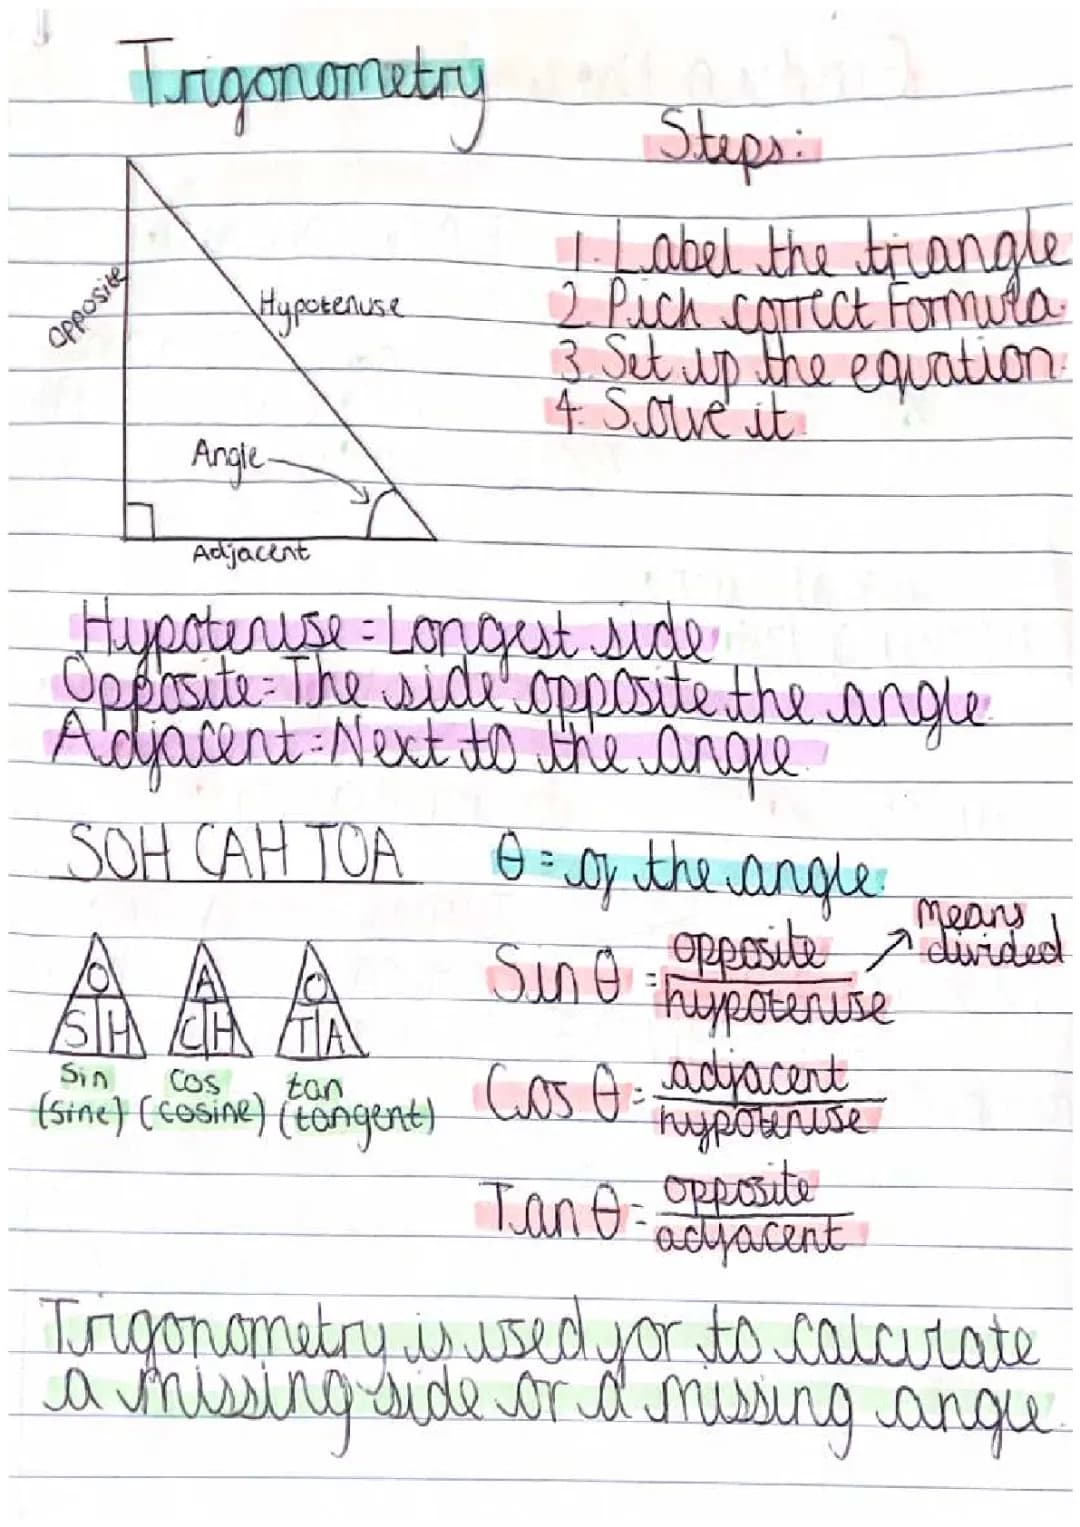 Trigonometry
Steps:
1. Label the triangle
2. Pick correct Formula.
3. Set up the equation.
4. Solve it.
opposite
Hypotenuse
Angle
Adjacent
Hypotenuse = Longest side
Opposite = The side opposite the angle.
Adjacent = Next to the angle.
SOH CAH TOA
θ = of the angle.
O
S H
A
C H
O
T A
sin
(sine)
cos
(cosine)
tan
(tangent)
Sin θ = opposite
hypotenuse
means
divided
Cos θ = adjacent
hypotenuse
Tan θ = opposite
adjacent
Trigonometry is used for to calculate
a missing side or a missing angle.